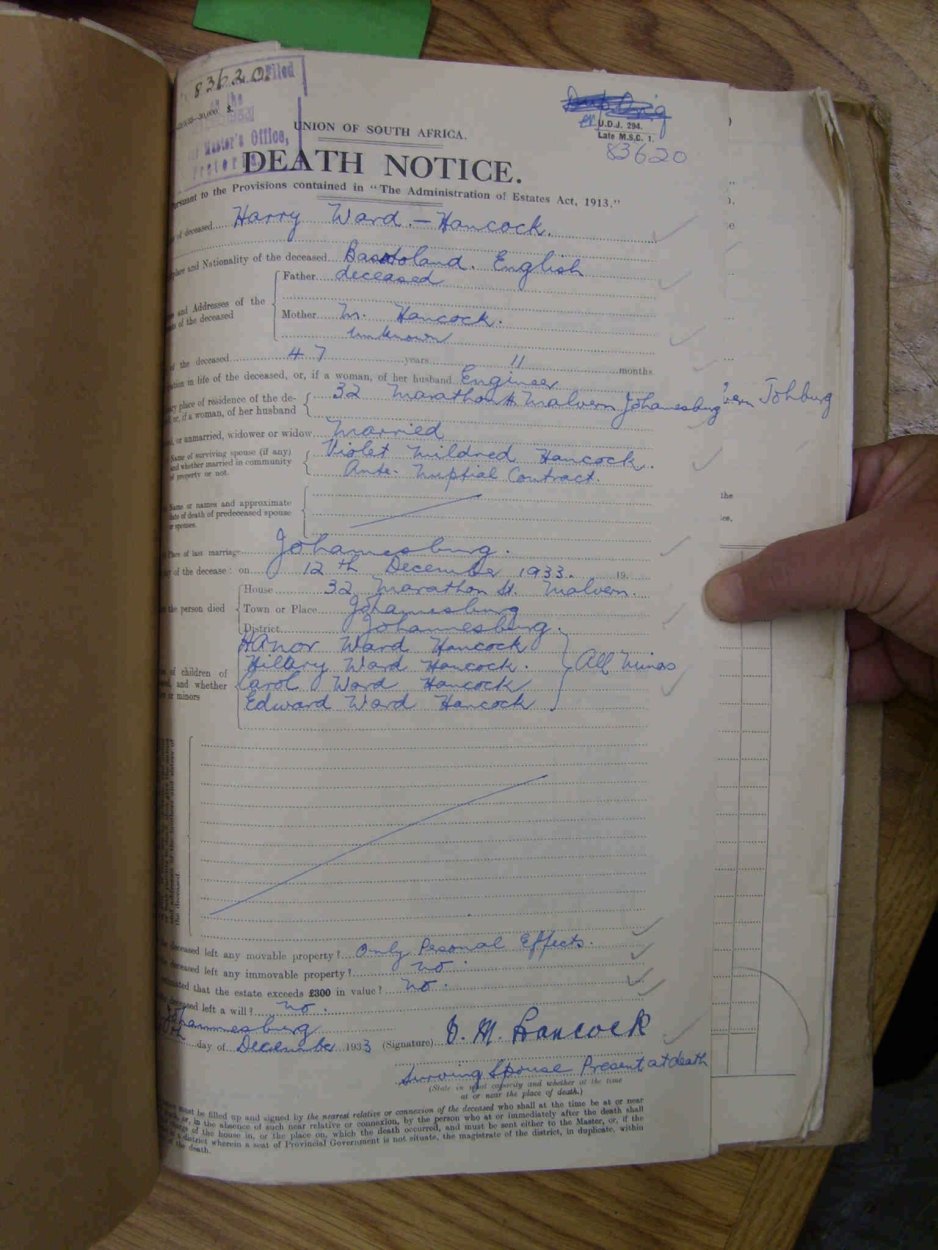 83620. Filed
in the
Master's Office,
Pretoria
UNION OF SOUTH AFRICA.
U.D.J. 294.
Late M.S.C. 1.
83620
DEATH NOTICE.
Pursuant to the Provisions contained in "The Administration of Estates Act, 1913."
of deceased Harry Ward - Hancock.
place and Nationality of the deceased Basutoland. English
Father deceased
and Addresses of the
of the deceased
Mother M. Hancock.
unknown
of the deceased 47 years 11 months
ation in life of the deceased, or, if a woman, of her husband Engineer
ary place of residence of the de-
or, if a woman, of her husband
32 Marathon St Malvern Johannesburg
vern Johburg
, or unmarried, widower or widow Married
Name of surviving spouse (if any)
and whether married in community
of property or not.
Violet Mildred Hancock.
Ante-Nuptial Contract.
Name or names and approximate
date of death of predeceased spouse
or spouses.
the
ce.
Place of last marriage Johannesburg.
of the decease: on 12th December 1933. 19
House 32 Marathon St. Malvern.
the person died
Town or Place Johannesburg
District Johannesburg.
Ward Hancock
Hillary Ward Hancock.
Carol Ward Hancock
Edward Ward Hancock
All Minos
of children of
, and whether
or minors
the deceased.
deceased left any movable property? Only Personal Effects.
deceased left any immovable property? no.
that the estate exceeds £300 in value? no.
left a will? no.
Johannesburg
day of December 1933
(Signature) V. M. Hancock
Surviving Spouse Present at death
(State in what capacity and whether at the time
at or near the place of death.)
must be filled up and signed by the nearest relative or connexion of the deceased who shall at the time be at or near
or, in the absence of such near relative or connexion, by the person who at or immediately after the death shall
of the house in, or the place on, which the death occurred, and must be sent either to the Master, or, if the
district wherein a seat of Provincial Government is not situate, the magistrate of the district, in duplicate, within
the death.